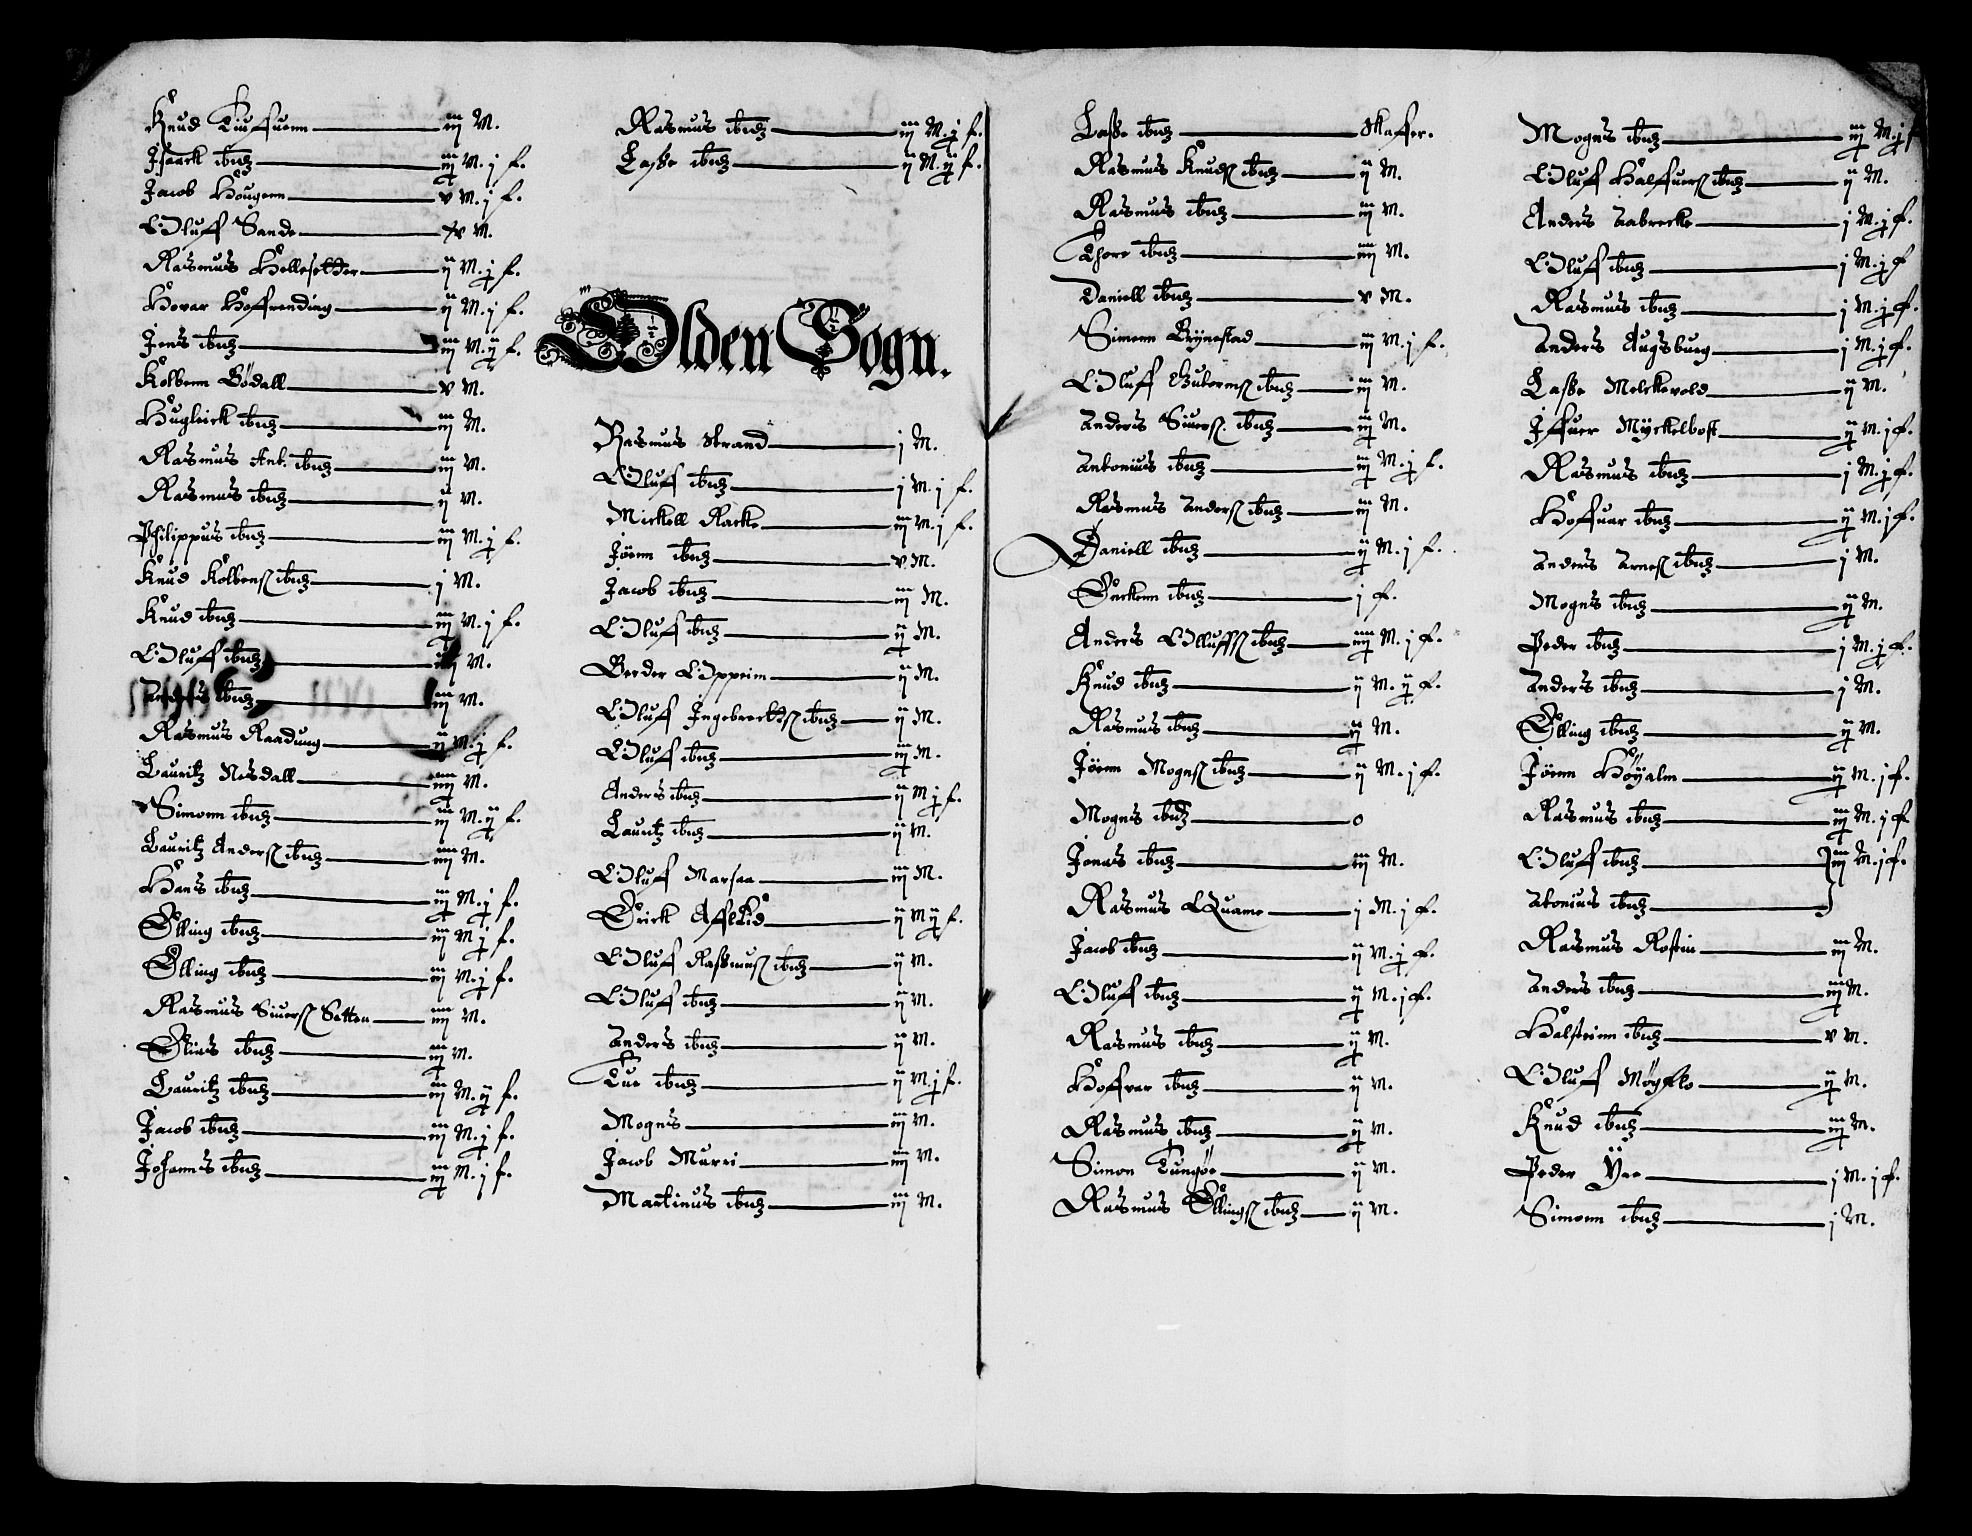 Knud Tiuffuenn — iij M.
Isaack ibid — iij M. j f.
Jacob Hougenn — v M. j f.
Oluff Sande — xv M.
Rasmus Hellesetter — ij M. j f.
Hovar Hoffrending — ij M. j f.
Jens ibid — iij M. ij f.
Kolbenn Bödall — v M.
Hugleick ibid — iij M.
Rasmus Ant. ibid — iij M.
Rasmus ibid — ij M.
Philippus ibid — iij M. j f.
Knud Kolbens ibid — j M.
Knud ibid — iij M. j f.
Oluff ibid — M.
Anders ibid — iij M.
Rasmus Raadung — ij M. j f.
Lauritz Nesdall — iiij M.
Simonn ibid — iij M. ij f.
Lauritz Anders ibid — iiij M.
Hans ibid — iij M. j f.
Elling ibid — iij M j f.
Elling ibid — iij M. j f.
Rasmus Siuers Setten — iiij M.
Elias ibid — iij M.
Lauritz ibid — iij M. ij f.
Jacob ibid — iij M. j f.
Johanns ibid — iij M. j f.
Rasmus ibid — iij M. j f.
Lasse ibid — ij M. ij f.
Olden Sogn.
Rasmus Strand — j M.
Oluff ibid — j M. j f.
Mickell Racke — iij M. j f.
Jöenn ibid — v M.
Jacob ibid — iij M.
Oluff ibid — ij M.
Berder Oppeim — ij M.
Oluff Ingebrectts ibid — ij M.
Oluff ibid — iij M.
Anders ibid — ij M j f.
Lauritz ibid — ij M.
Oluff Marsaa — iij M.
Erick Afflid — ij M ij f.
Oluff Rassmus ibid — ij M.
Oluff ibid — ij M.
Anders ibid — ij M.
Tue ibid — ij M. j f.
Mogns — iij M.
Jacob Murri — iiij M.
Martinus ibid — iij M.
Lasse ibid — Skaffer.
Rasmus Knuds ibid — ij M.
Rasmus ibid — iij M.
Thore ibid — iiij M.
Daniell ibid — v M.
Simenn Brynestad — iij M. j f.
Oluff Gutorms ibid — iij M.
Anders Siuers. ibid — iij M.
Antonius ibid — iij M. j f.
Rasmus Anders ibid — iij M.
Daniell ibid — ij M. j f.
Enckenn ibid — j f.
Anders Olluffs ibid — iiij M. j f.
Knud ibid — ij M. ij f.
Rasmus ibid — ij M.
Jöenn Mogns ibid — ij M. j f.
Mogns ibid — o
Jonas ibid — iij M.
Rasmus Quame — j M. j f.
Jacob ibid — ij M. j f.
Oluff ibid — ij M. j f.
Rasmus ibid — ij M.
Hoffvar ibid — ij M.
Rasmus ibid — ij M.
Simon Tungöe — ij M.
Rasmus Ellings ibid — ij M.
Mogns ibid — iij M. j f
Oluff Halffuers ibid — ij M.
Anders Aabrecke — j M. j f.
Oluff ibid — j M. j f
Rasmus ibid — j M. j f.
Anders Augsburg — j M. j f.
Lasse Melckevold — ij M.
Iffuer Myckelbost — ij M. j f.
Rasmus ibid — j M. j f.
Hoffuar ibid — ij M. j f.
Anders Arnes ibid — j M.
Mogns ibid — ij M.
Peder ibid — j M. j f.
Anders ibid — j M.
Elling ibid — ij M.
Jöenn Höyalm — ij M. j f.
Rasmus ibid — iij M. j f
Oluff ibid — } iij M. j f.
Atonius ibid — }
Rasmus Rostin — iij M.
Anders ibid — iij M.
Halsteinn ibid — v M.
Oluff Möyflo — ij M.
Knud ibid — iij M.
Peder Yrr — j M. j f.
Simonn ibid — j M.